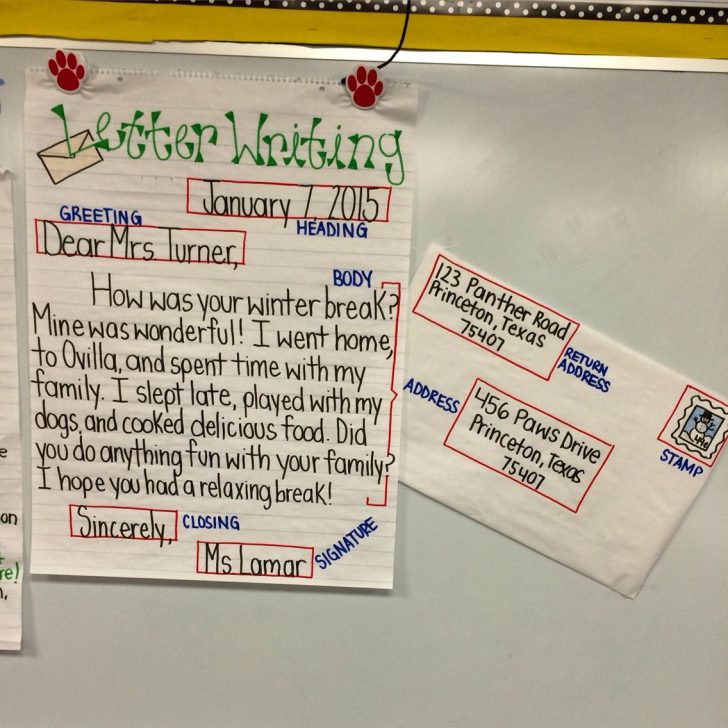 Letter Writing
January 7, 2015
HEADING
GREETING
Dear Mrs Turner,
BODY
How was your winter break?
Mine was wonderful! I went home,
to Ovilla, and spent time with my
family. I slept late, played with my
dogs, and cooked delicious food. Did
you do anything fun with your family?
I hope you had a relaxing break!
Sincerely,
CLOSING
Ms Lamar
SIGNATURE
123 Panther Road
Princeton, Texas
75407
RETURN
ADDRESS
ADDRESS
456 Paws Drive
Princeton, Texas
75407
STAMP
on